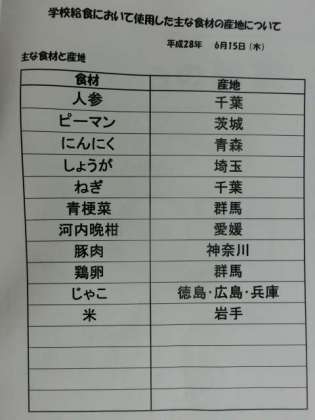 学校給食において使用した主な食材の産地について
平成28年 6月15日(水)
主な食材と産地
食材 産地
人参 千葉
ピーマン 茨城
にんにく 青森
しょうが 埼玉
ねぎ 千葉
青梗菜 群馬
河内晩柑 愛媛
豚肉 神奈川
鶏卵 群馬
じゃこ 徳島・広島・兵庫
米 岩手